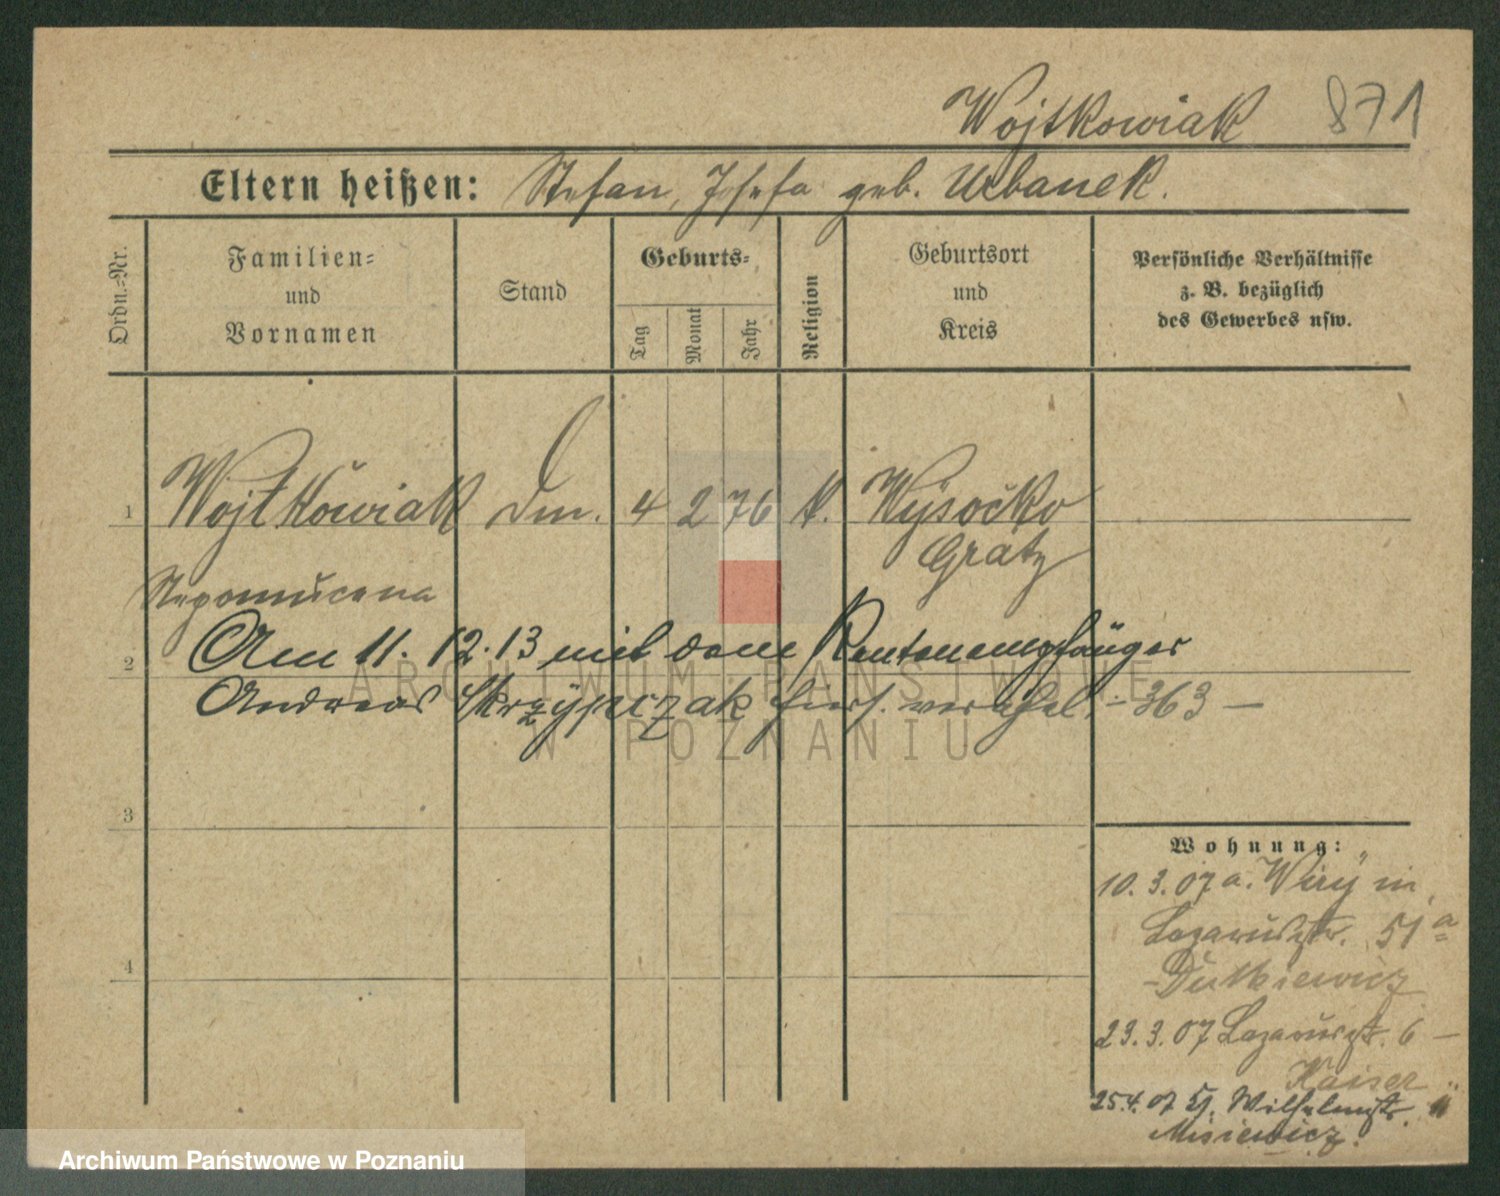 Wojtkowiak 871
Eltern heißen: Stefan, Josefa geb. Urbanek.
Ordn.=Nr.
Familien=
und
Vornamen
Stand
Geburts=
Tag
Monat
Jahr
Religion
Geburtsort
und
Kreis
Persönliche Verhältnisse
z. B. bezüglich
des Gewerbes usw.
1 Wojtkowiak Dm. 4 2 76 k. Wysocko
Grätz
Nepomucena
Am 11. 12. 13 mit dem Rentenempfänger
2
Andreas Skrzypczak hier verehel. - 363 -
3
4
Wohnung:
10. 3. 07 a. Wiry in
Lazarusstr. 51 a
- Dutkiewicz
23. 3. 07 Lazarusstr. 6 -
Kaiser
25.4. 07 Wilhelmstr.
Misiewicz.
ARCHIWUM PAŃSTWOWE
W POZNANIU
Archiwum Państwowe w Poznaniu